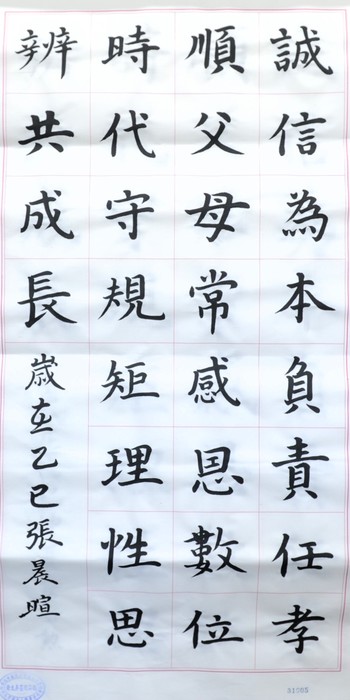 誠信為本負責任孝
順父母常感恩數位
時代守規矩理性思
辨共成長
歲在乙巳張晨暄